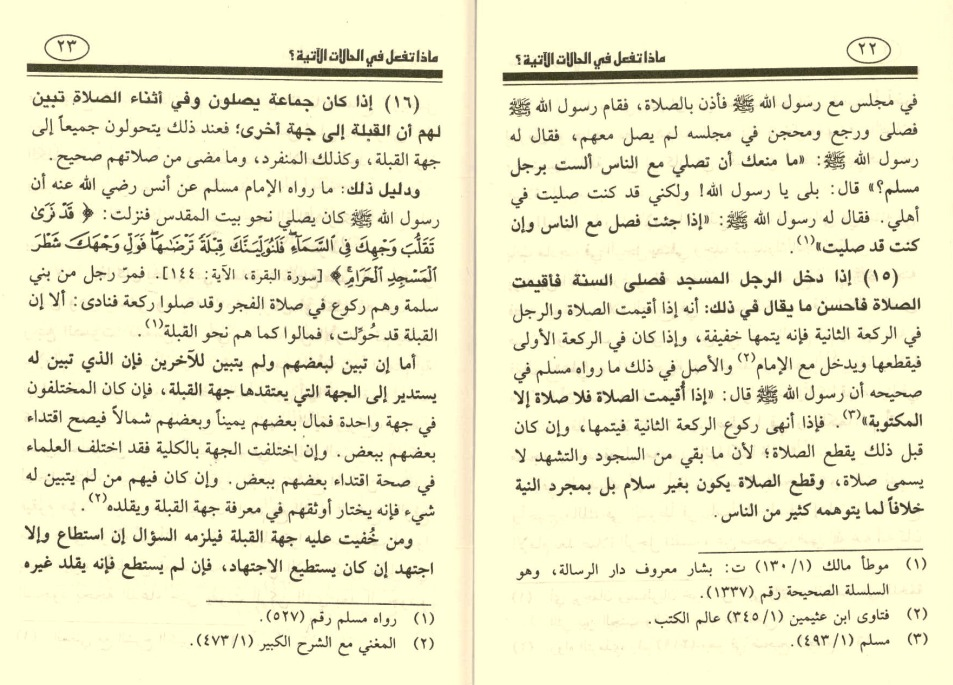 ماذا تفعل في الحالات الآتية؟
٢٢
في مجلس مع رسول الله ﷺ فأذن بالصلاة، فقام رسول الله ﷺ
فصلى ورجع ومحجن في مجلسه لم يصل معهم، فقال له
رسول الله ﷺ: «ما منعك أن تصلي مع الناس ألست برجل
مسلم؟» قال: بلى يا رسول الله! ولكني قد كنت صليت في
أهلي. فقال له رسول الله ﷺ: «إذا جئت فصل مع الناس وإن
كنت قد صليت»(١).
(١٥) إذا دخل الرجل المسجد فصلى السنة فأقيمت
الصلاة فأحسن ما يقال في ذلك: أنه إذا أقيمت الصلاة والرجل
في الركعة الثانية فإنه يتمها خفيفة، وإذا كان في الركعة الأولى
فيقطعها ويدخل مع الإمام(٢) والأصل في ذلك ما رواه مسلم في
صحيحه أن رسول الله ﷺ قال: «إذا أُقيمت الصلاة فلا صلاة إلا
المكتوبة»(٣). فإذا أنهى ركوع الركعة الثانية فيتمها، وإن كان
قبل ذلك يقطع الصلاة؛ لأن ما بقي من السجود والتشهد لا
يسمى صلاة، وقطع الصلاة يكون بغير سلام بل بمجرد النية
خلافاً لما يتوهمه كثير من الناس.
(١) موطأ مالك (١/١٣٠) ت: بشار معروف دار الرسالة، وهو
السلسلة الصحيحة رقم (١٣٣٧).
(٢) فتاوى ابن عثيمين (١/٣٤٥) عالم الكتب.
(٣) مسلم (١/٤٩٣).
ماذا تفعل في الحالات الآتية؟
٢٣
(١٦) إذا كان جماعة يصلون وفي أثناء الصلاة تبين
لهم أن القبلة إلى جهة أخرى؛ فعند ذلك يتحولون جميعاً إلى
جهة القبلة، وكذلك المنفرد، وما مضى من صلاتهم صحيح.
ودليل ذلك: ما رواه الإمام مسلم عن أنس رضي الله عنه أن
رسول الله ﷺ كان يصلي نحو بيت المقدس فنزلت: ﴿ قَدْ نَرَىٰ
تَقَلُّبَ وَجْهِكَ فِي السَّمَاءِ ۖ فَلَنُوَلِّيَنَّكَ قِبْلَةً تَرْضَاهَا ۚ فَوَلِّ وَجْهَكَ شَطْرَ
الْمَسْجِدِ الْحَرَامِ ۚ ﴾ [سورة البقرة، الآية: ١٤٤]. فمرَّ رجل من بني
سلمة وهم ركوع في صلاة الفجر وقد صلوا ركعة فنادى: ألا إن
القبلة قد حُوِّلت، فمالوا كما هم نحو القبلة(١).
أما إن تبين لبعضهم ولم يتبين للآخرين فإن الذي تبين له
يستدير إلى الجهة التي يعتقدها جهة القبلة، فإن كان المختلفون
في جهة واحدة فمال بعضهم يميناً وبعضهم شمالاً فيصح اقتداء
بعضهم ببعض. وإن اختلفت الجهة بالكلية فقد اختلف العلماء
في صحة اقتداء بعضهم ببعض. وإن كان فيهم من لم يتبين له
شيء فإنه يختار أوثقهم في معرفة جهة القبلة ويقلده(٢).
ومن خُفيت عليه جهة القبلة فيلزمه السؤال إن استطاع وإلا
اجتهد إن كان يستطيع الاجتهاد، فإن لم يستطع فإنه يقلد غيره
(١) رواه مسلم رقم (٥٢٧).
(٢) المغني مع الشرح الكبير (١/٤٧٣).